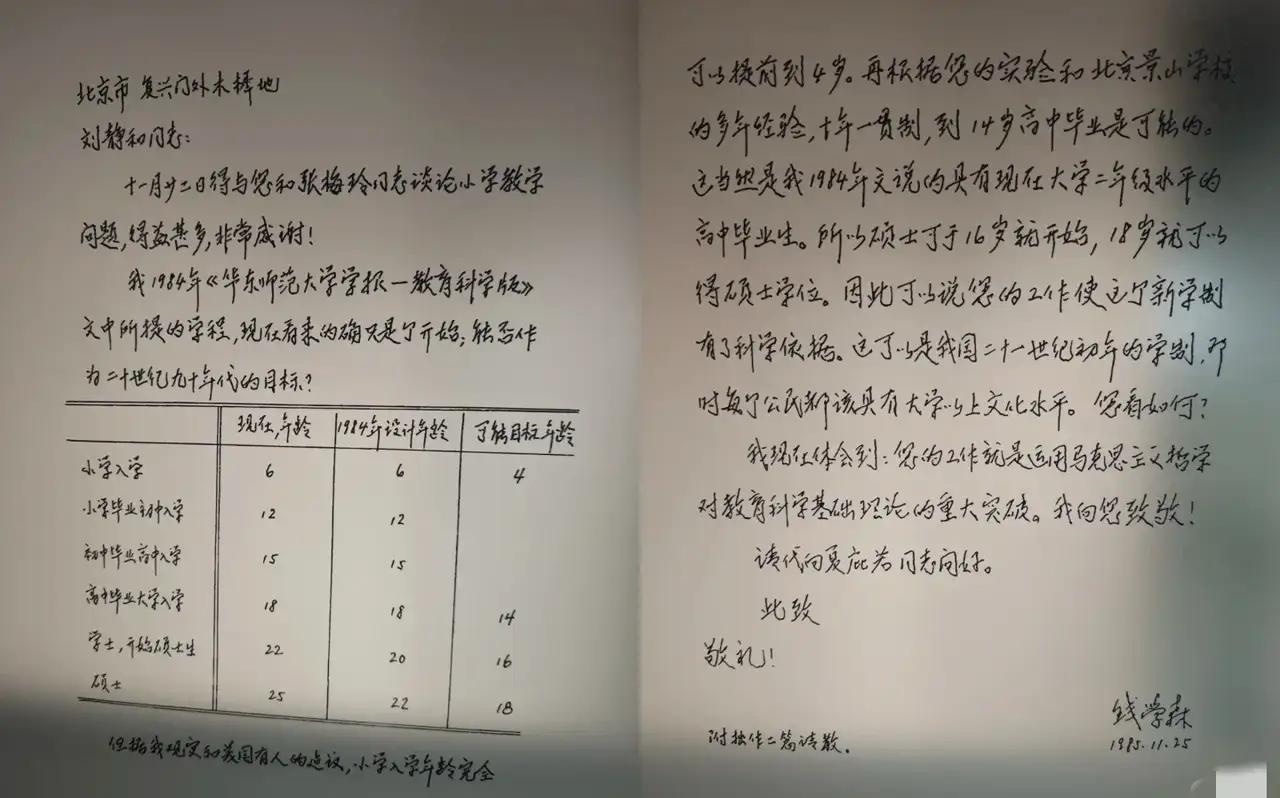 北京市 复兴门外木樨地
刘静和同志:
十一月廿二日得与您和张梅玲同志谈论小学教学
问题,得益甚多,非常感谢!
我1984年《华东师范大学学报—教育科学版》
文中所提的学程,现在看来的确只是个开始;能否作
为二十世纪九十年代的目标?
现在,年龄 1984年设计年龄 可能目标年龄
小学入学 6 6 4
小学毕业初中入学 12 12
初中毕业高中入学 15 15
高中毕业大学入学 18 18 14
学士,开始硕士生 22 20 16
硕士 25 22 18
但据我观察和美国有人的建议,小学入学年龄完全
可以提前到4岁。再根据您的实验和北京景山学校
的多年经验,十年一贯制,到14岁高中毕业是可能的。
这当然是我1984年文说的具有现在大学二年级水平的
高中毕业生。所以硕士可于16岁就开始,18岁就可以
得硕士学位。因此可以说您的工作使这个新学制
有了科学依据。这可以是我国二十一世纪初年的学制,那
时每个公民都该具有大学以上文化水平。您看如何?
我现在体会到:您的工作就是运用马克思主义哲学
对教育科学基础理论的重大突破。我向您致敬!
请代向夏庇若同志问好。
此致
敬礼!
钱学森
1985.11.25
附拙作二篇请教。